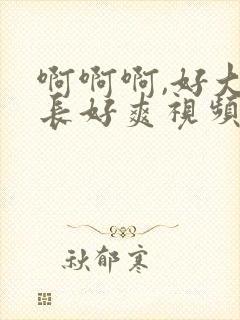 啊啊啊,好大
長好爽視頻
秋郁寒